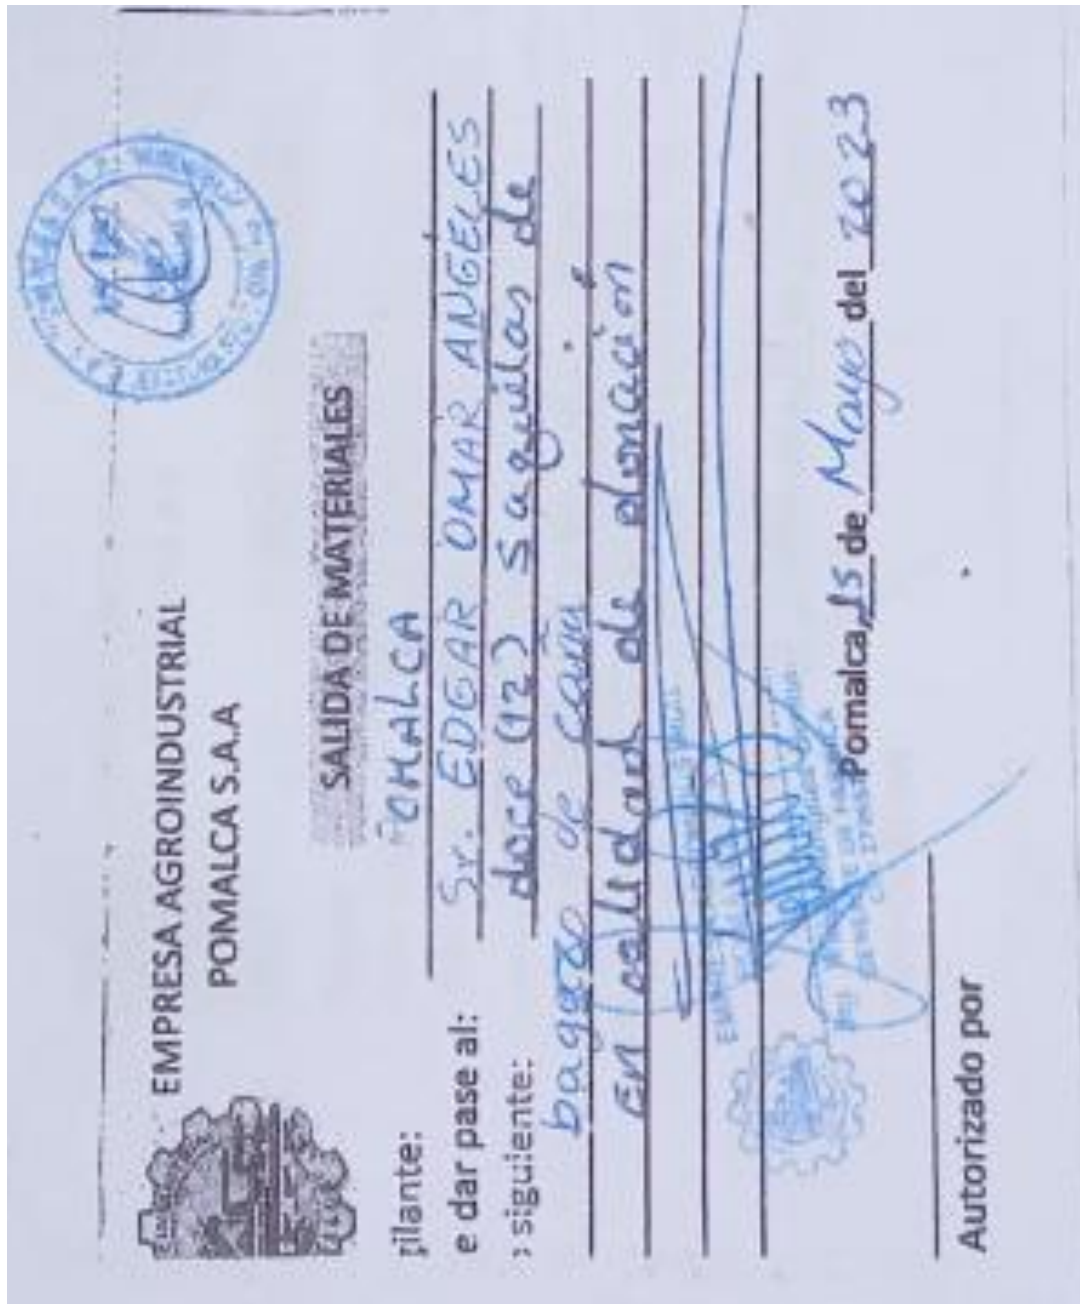 EMPRESA AGROINDUSTRIAL
POMALCA S.A.A
SALIDA DE MATERIALES
gilante: POMALCA
e dar pase al: Sr. EDGAR OMAR ANGELES
siguiente: doce (12) saquilos de
bagazo de caña
en calidad de donación
Pomalca, 15 de Mayo del 2023
Autorizado por